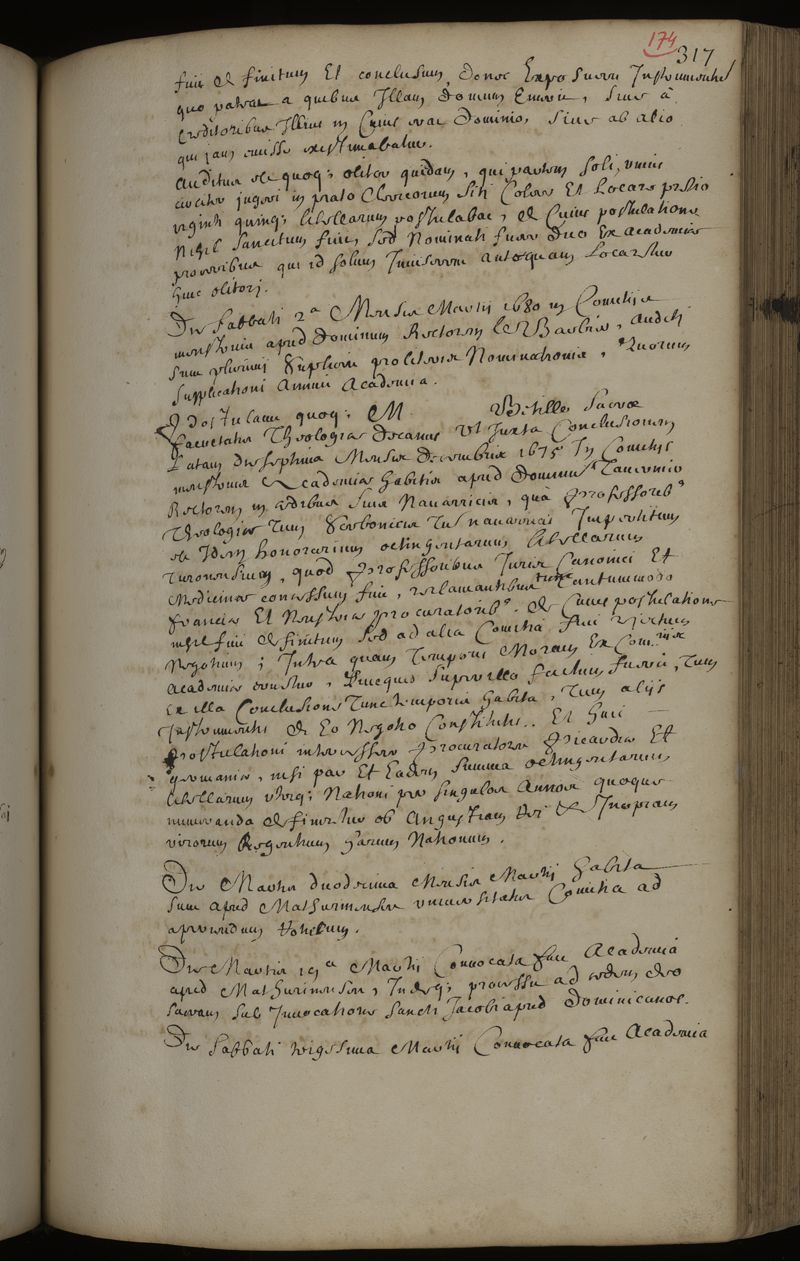 174 317
fuit definitum Et conclusum donec Exposuerit Instrumentis
quo pateat a quibus Illam Domum Emerit, sive à
Creditoribus Illius in Cuius erat Dominio, sive ab alio
qui jam emisse existimabatur.
Auditus est quoq; olitor quidam, qui partem soli, unius
circiter jugeri in prato Clericorum siti Colere Et Locare pretio
viginti quinq; libellarum postulabat, de Cuius postulatione
Nihil sancitum fuit, sed Nominati fuere duo Ex academiæ
proceribus qui id solum Inviserent antequam Locaretur
huic olitori.
Die sabbati 2ª Mensis Martij 1680 in Comitijs
menstruis apud Dominum Rectorem Le Barbier, auditi
sunt plurimi supplices pro literis Nominationis, Quorum
supplicationi Annuit Academia.
Postulavit quoq; M. Petitte Sacræ
Facultatis Theologiæ Decanus Ut Juxta Conclusionem
Latam die septima Mensis Decembris 1675 In Comitijs
menstruis Academiæ habitis apud Dominum Tavernier
Rectorem in ædibus suis Navarricis, quâ Professoribus
Theologiæ Tum Sorbonicis Tum navarricis Impertitum
est Idem honorarium octingentarum libellarum
Turonensium, quod Professoribus Juris Canonici Et
Medicinæ concessum fuit, reclamantibus tunc tantummodo
Franciæ Et Neustriæ procuratoribus. de Cuius postulatione
nihil fuit definitum sed ad alia Comitia fuit rejectum
Negotium; Intra quam Temporis Moram Ex Com.rijs
academiæ eruetur, Quicquid super illo factum fuerit, Tum
ex illa Conclusione Tunc temporis habita, Tum alijs
Instrumentis de Eo Negotio Constitutis.. Et huic
Postulationi intercessere Procuratores Picardiæ Et
germaniæ, nisi par Et Eadem summa octingentarum
libellarum utriq; Nationi per singulos Annos quoque
numeranda definiretur ob Angustiam Rei Et Inopiam
virorum Regentium harum Nationum.
Die Martis duodecima Mensis Martij habita
sunt apud Mathurinenses universitatis Comitia ad
aperiendum Rotulum.
Die Martis 19ª Martij Convocata fuit Academia
apud Mathurinenses, Indeq; processit ad ædem Deo
sacram sub Invocatione sancti Jacobi apud Dominicanos.
Die sabbati vigesima Martij Convocata fuit Academia